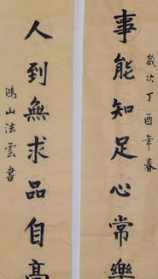 歲次丁酉年春
事能知足心常樂
人到無求品自高
鴻山法雲書